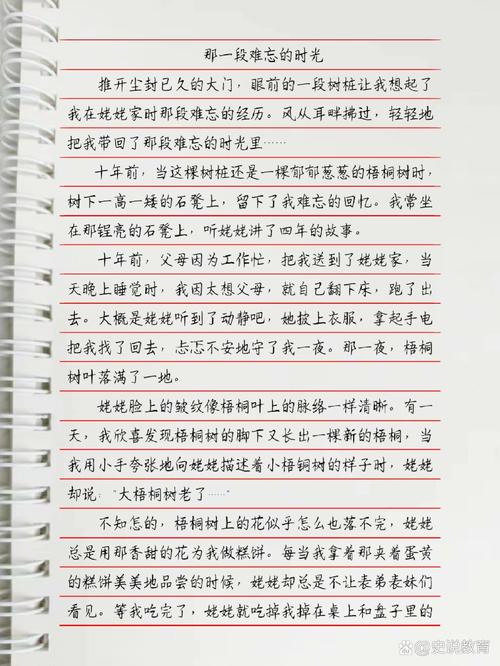 那一段难忘的时光
推开尘封已久的大门，眼前的一段树桩让我想起了
我在姥姥家时那段难忘的经历。风从耳畔拂过，轻轻地
把我带回了那段难忘的时光里……
十年前，当这棵树桩还是一棵郁郁葱葱的梧桐树时，
树下一高一矮的石凳上，留下了我难忘的回忆。我常坐
在那锃亮的石凳上，听姥姥讲了四年的故事。
十年前，父母因为工作忙，把我送到了姥姥家，当
天晚上睡觉时，我因太想父母，就自己翻下床，跑了出
去。大概是姥姥听到了动静吧，她披上衣服，拿起手电
把我找了回去，忐忑不安地守了我一夜。那一夜，梧桐
树叶落满了一地。
姥姥脸上的皱纹像梧桐叶上的脉络一样清晰。有一
天，我欣喜发现梧桐树的脚下又长出一棵新的梧桐，当
我用小手夸张地向姥姥描述着小梧铜树的样子时，姥姥
却说："大梧桐树老了……"
不知怎的，梧桐树上的花似乎怎么也落不完，姥姥
总是用那香甜的花为我做糕饼。每当我拿着那夹着蛋黄
的糕饼美美地品尝的时候，姥姥却总是不让表弟表妹们
看见。等我吃完了，姥姥就吃掉我掉在桌上和盘子里的
史说教育